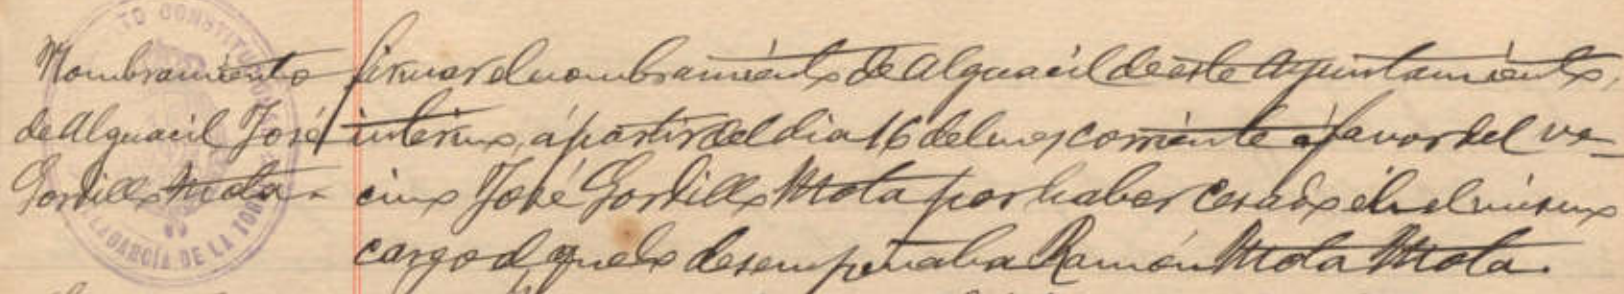 Nombramiento
de Alguacil José
Gordillo Mota.
firmar el nombramiento de Alguacil de este Ayuntamiento,
interino, á partir del dia 16 del mes corriente á favor del ve-
cino José Gordillo Mota por haber cesado én el mismo
cargo el que lo desempeñaba Ramón Mota Mota.
TO CONSTITUCION
LLAGARCÍA DE LA TOR